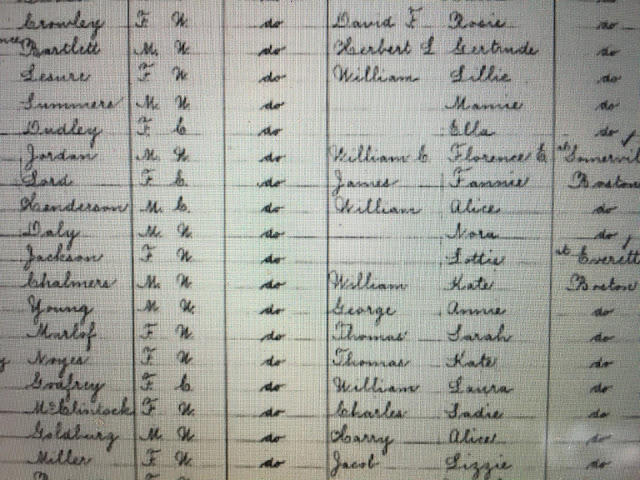 Crowley F W. do David F Rosie do
Bartlett M. W. do Herbert L Gertrude do
Lesure F W do William Lillie do
Summers M. W. do Mamie do
Dudley F C. do Ella do
Jordan M. W. do William C Florence E at Somervil
Lord F C. do James Fannie Boston
Henderson M. C. do William Alice do
Daly M. W. do Nora do
Jackson F W. do Lottie at Everett
Chalmers M. W. do William Kate Boston
Young M W. do George Annie do
Marlof F W. do Thomas Sarah do
Noyes F W. do Thomas Kate do
Godfrey F C. do William Laura do
McClintock F W. do Charles Sadie do
Goldburg M W. do Harry Alice do
Miller F W. do Jacob Lizzie do